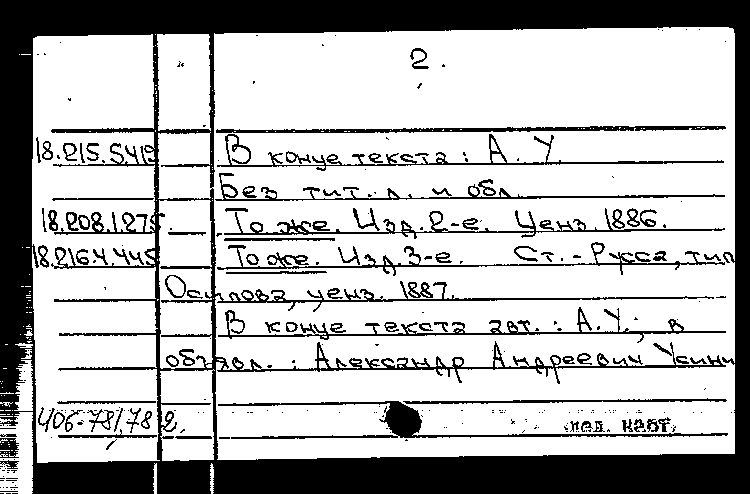 2.
18.215.542 В конце текста: А. У.
Без тит. л. и обл.
18.208.1.275. То же. Изд. 2-е. Ценз. 1886.
18.216.4.445 То же. Изд. 3-е. Ст.-Русса, тип
Осипова, ценз. 1887.
В конце текста авт.: А. У.; в
объявл.: Александр Андреевич
406-781,782.